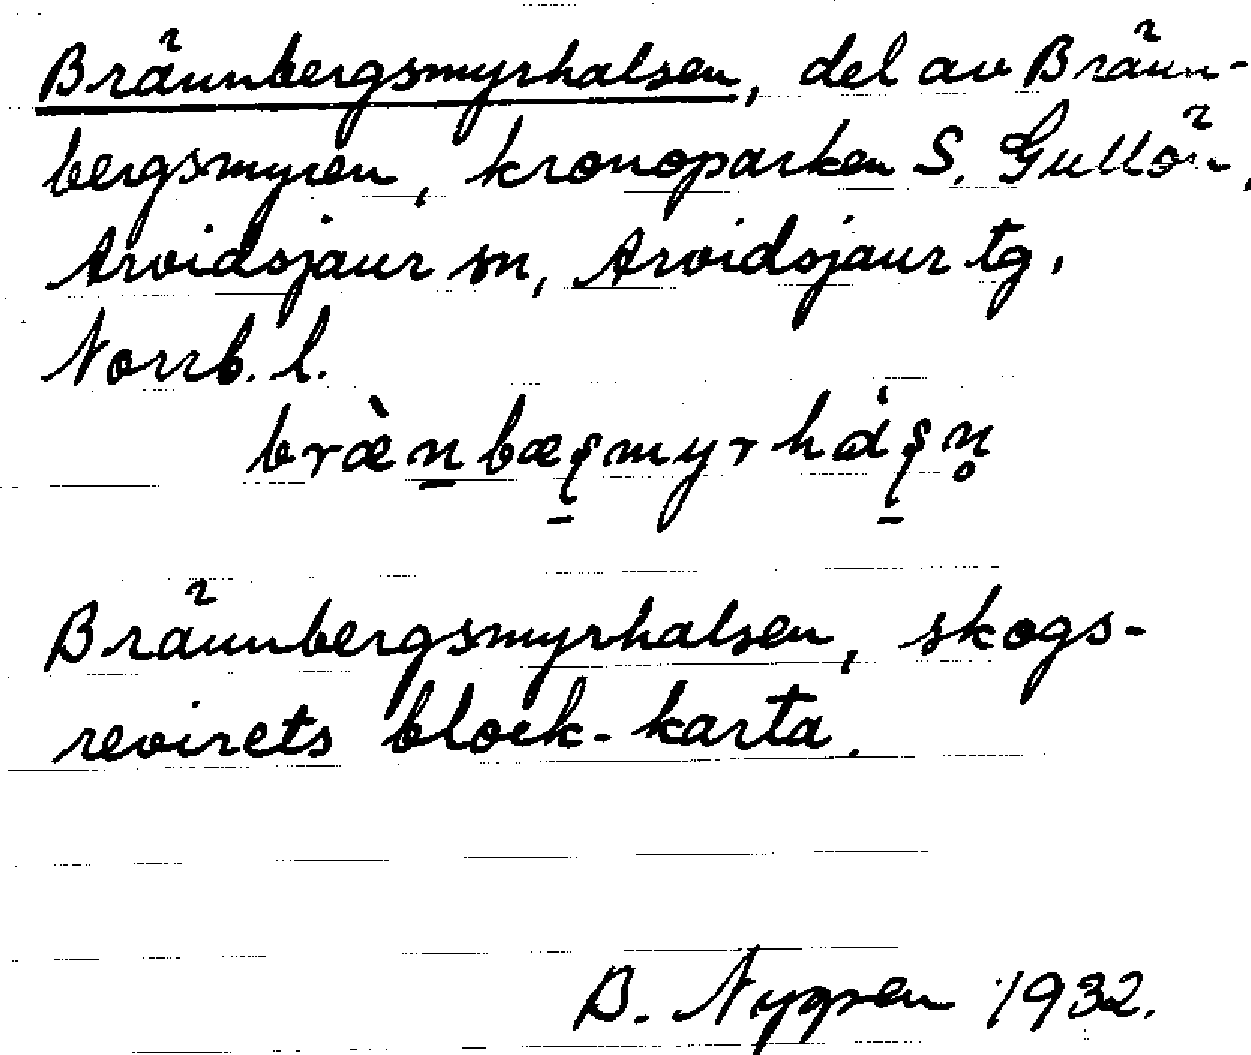 Brännbergsmyrhalsen, del av Bränn-
bergsmyren, kronoparken S. Gullön,
Arvidsjaur sn, Arvidsjaur tg,
Norrb. l.
Brännbergsmyrhalsen, skogs-
revirets block-karta.
B. Nygren 1932.